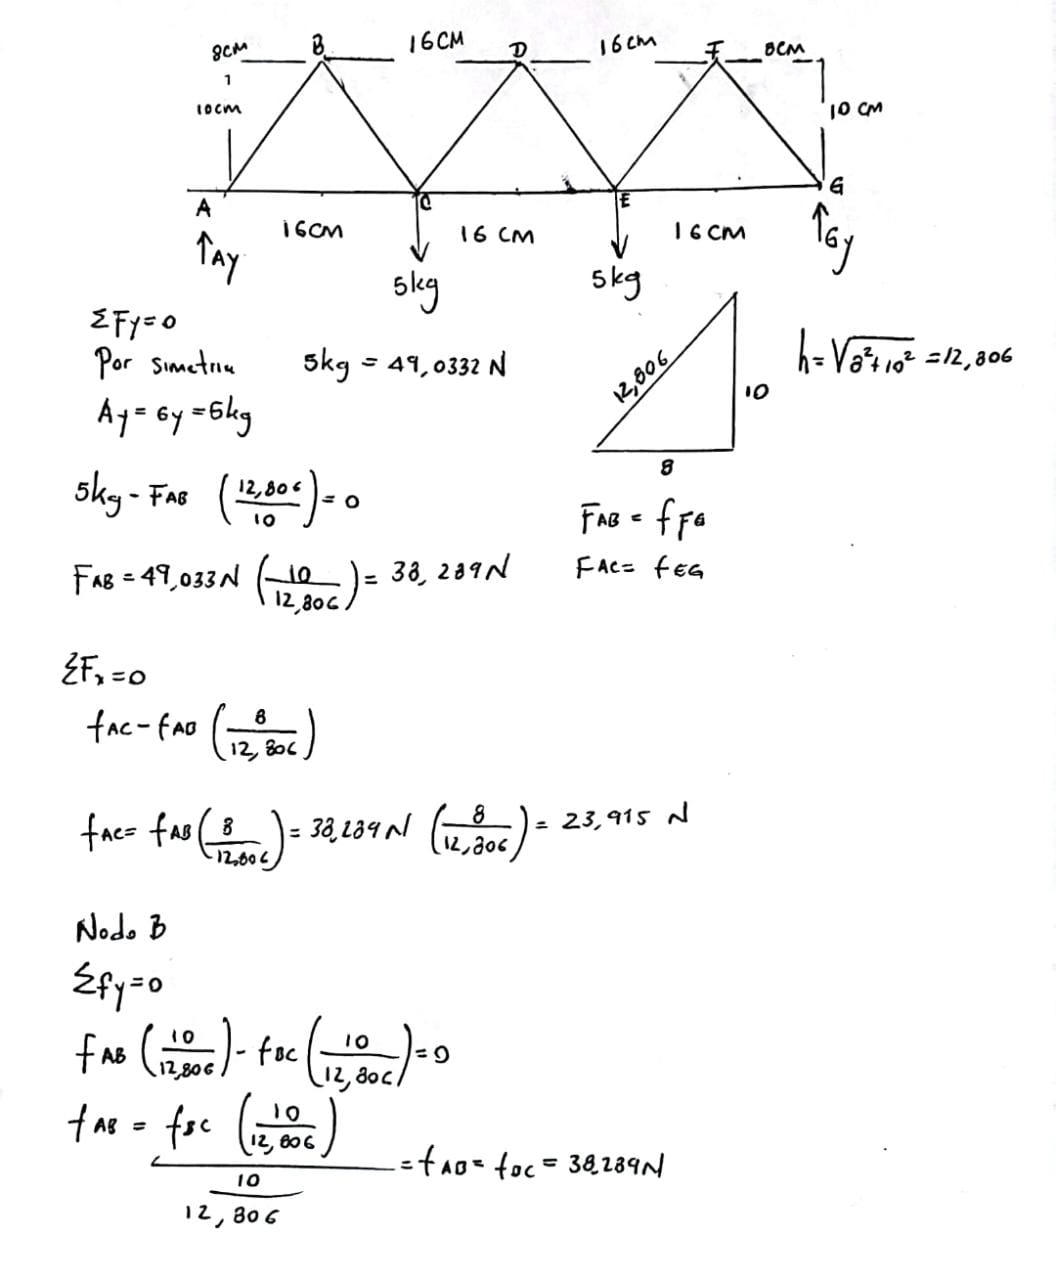 8cm B 16cm D 16cm F 8cm
10cm 10 cm
A C E G
16cm 16 cm 16cm
↑Ay 5kg 5kg ↑Gy
ΣFy=0
Por simetria 5kg = 49,0332 N
Ay = Gy = 5kg
12,806 10 8
h=√8²+10² = 12,806
5kg - FAB (12,806/10) = 0
FAB = fFG
FAB = 49,033N (10/12,806) = 38,289N
FAC = fEG
ΣFx=0
fAC - fAB (8/12,806)
fAC = fAB (8/12,806) = 38,289N (8/12,806) = 23,915 N
Nodo B
Σfy=0
fAB (10/12,806) - fBC (10/12,806) = 0
fAB = fBC (10/12,806) / 10/12,806 = fAB = fBC = 38,289N